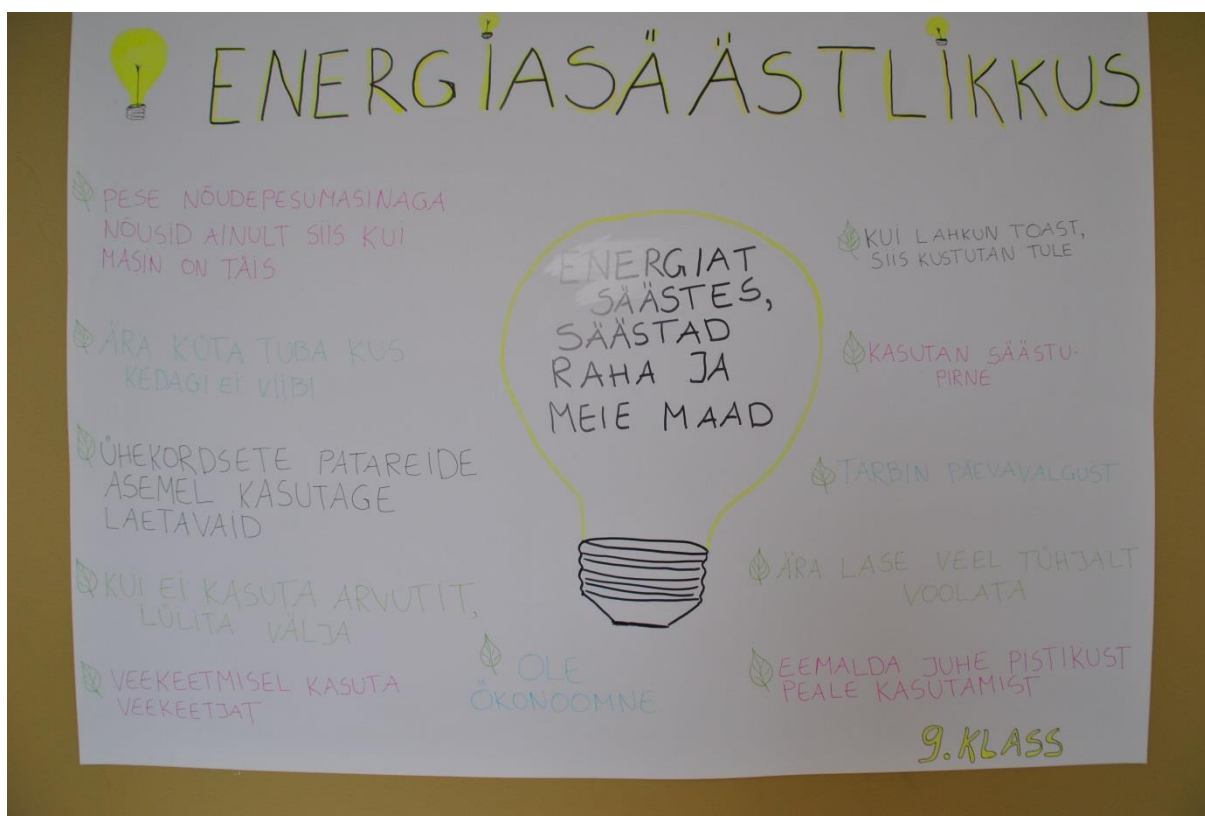 ENERGIASÄÄSTLIKKUS
PESE NÕUDEPESUMASINAGA
NÕUSID AINULT SIIS KUI
MASIN ON TÄIS
ÄRA KÜTA TUBA KUS
KEDAGI EI VIIBI
ÜHEKORDSETE PATAREIDE
ASEMEL KASUTAGE
LAETAVAID
KUI EI KASUTA ARVUTIT,
LÜLITA VÄLJA
VEEKEETMISEL KASUTA
VEEKEETJAT
ENERGIAT
SÄÄSTES,
SÄÄSTAD
RAHA JA
MEIE MAAD
OLE
ÖKONOOMNE
KUI LAHKUN TOAST,
SIIS KUSTUTAN TULE
KASUTAN SÄÄSTU-
PIRNE
TARBIN PÄEVAVALGUST
ÄRA LASE VEEL TÜHJALT
VOOLATA
EEMALDA JUHE PISTIKUST
PEALE KASUTAMIST
9. KLASS